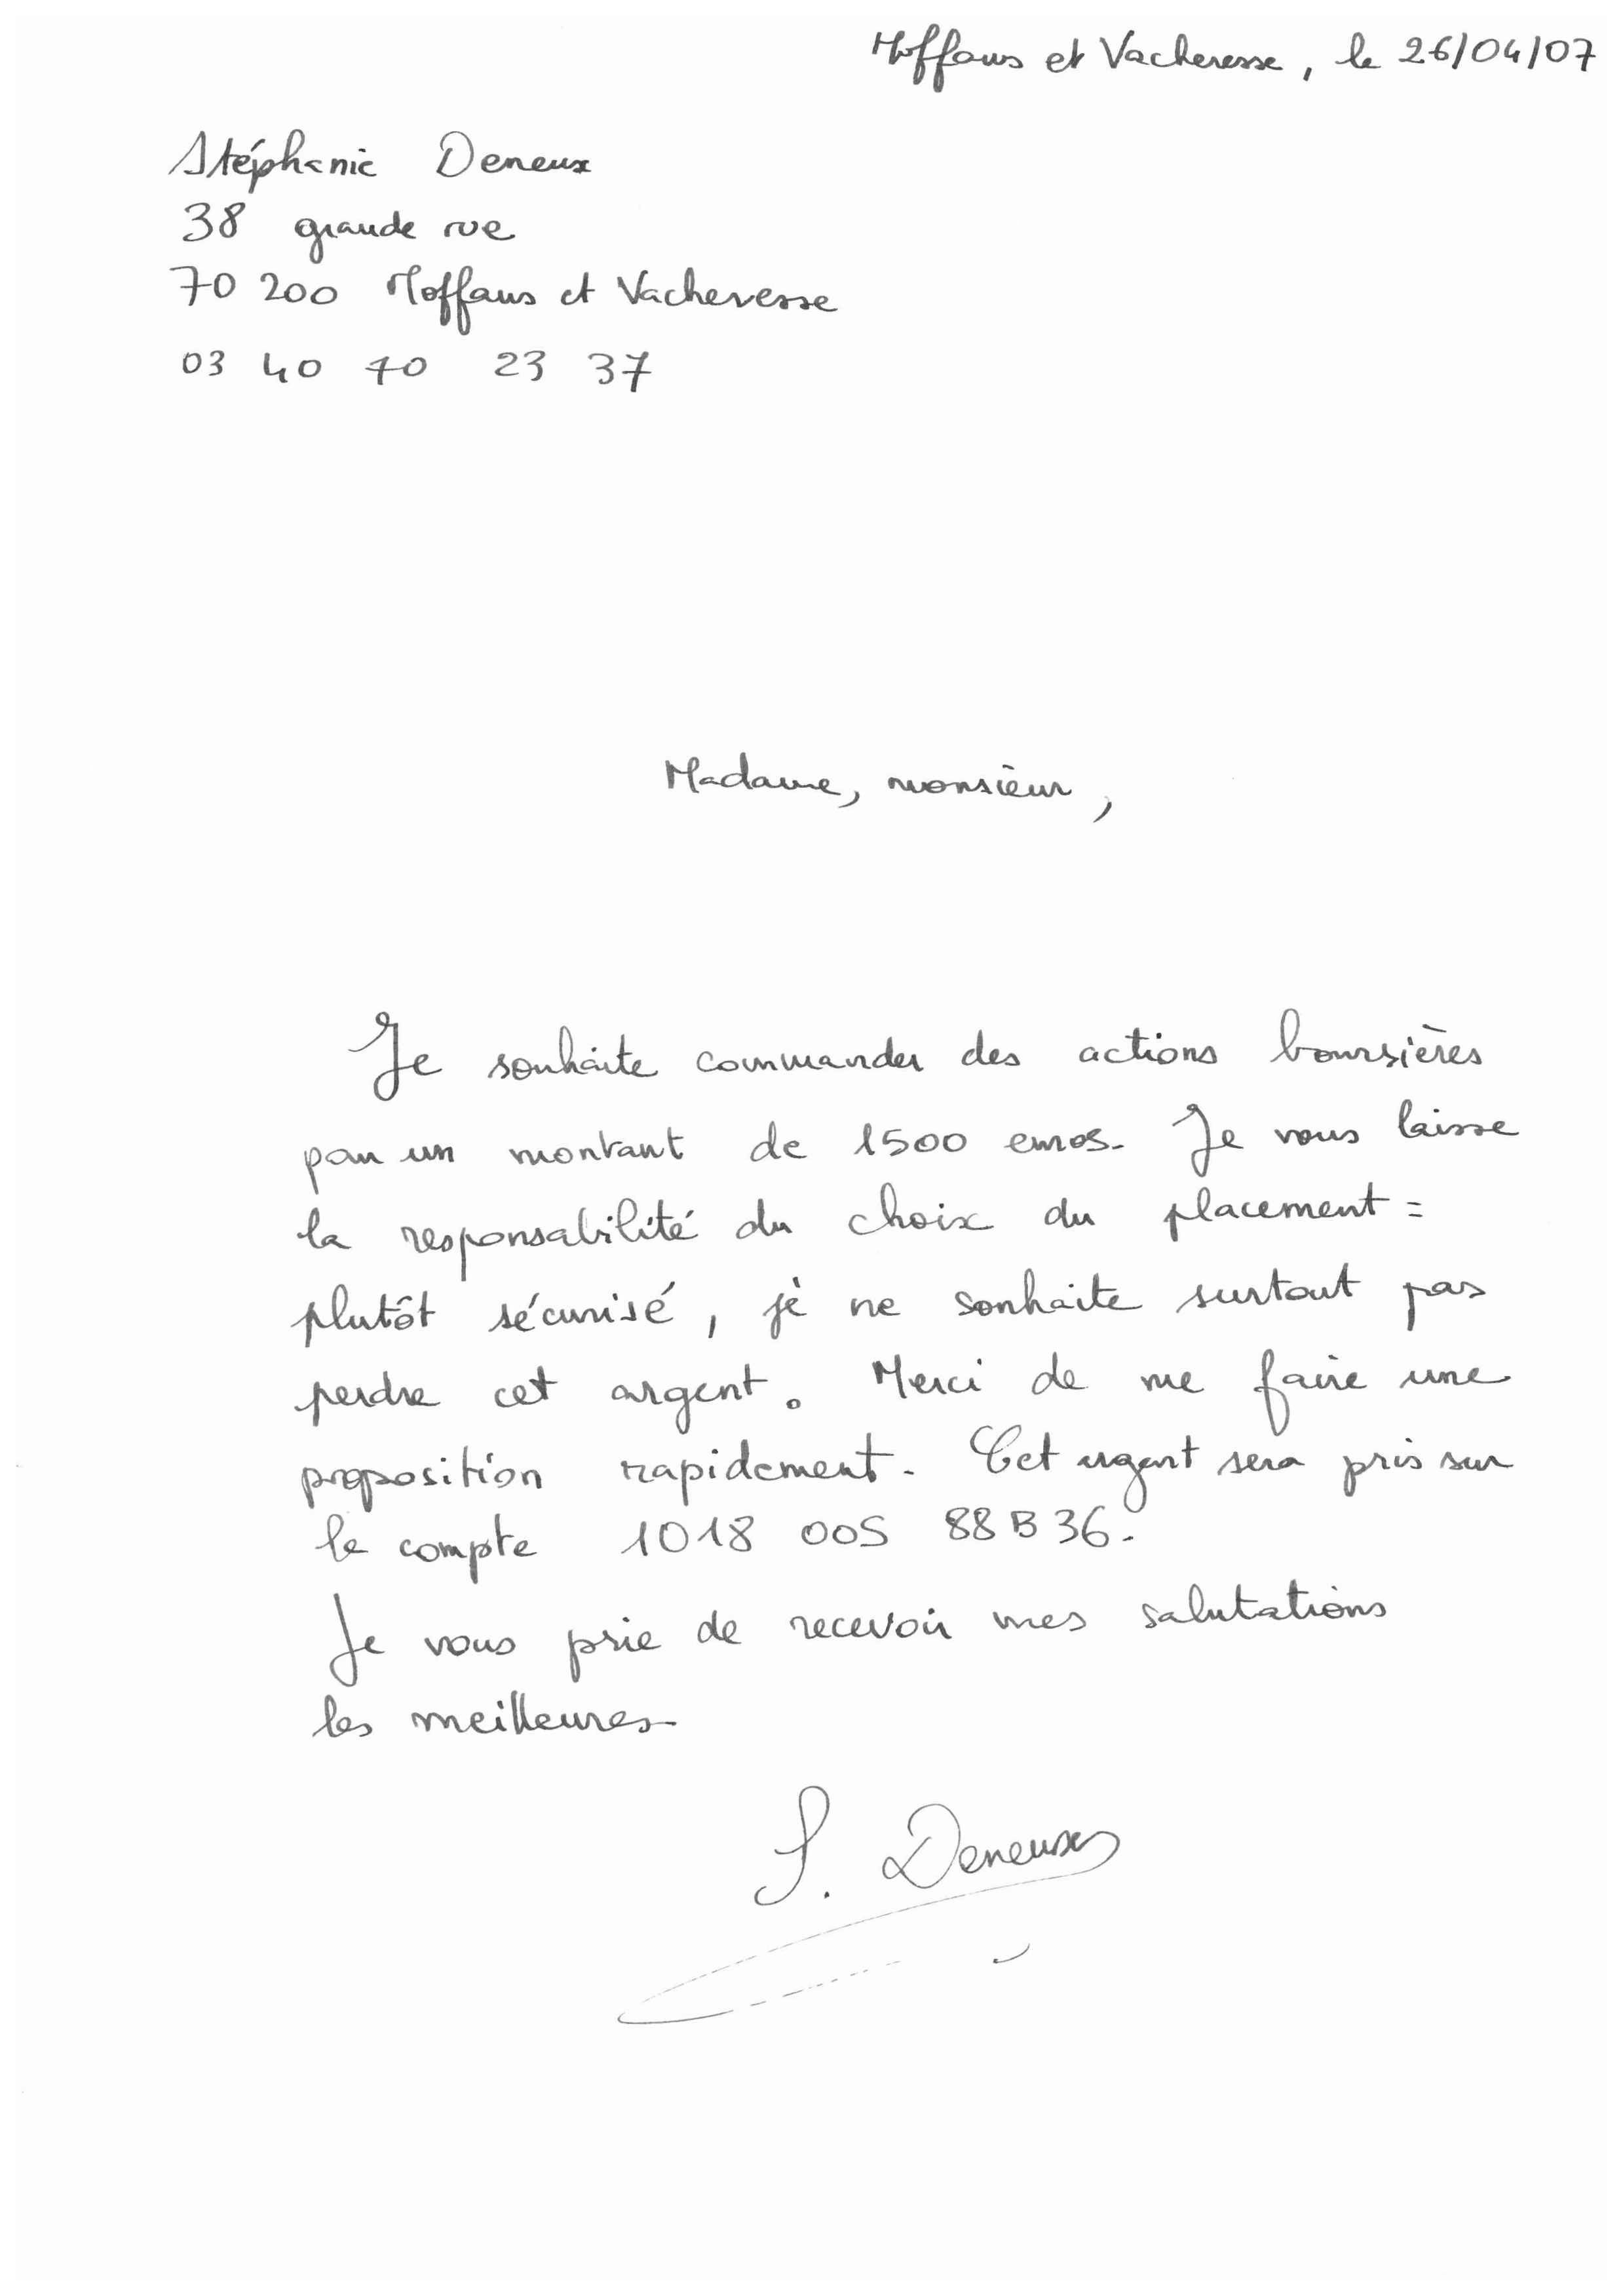 Moffans et Vacheresse, le 26/04/07
Stéphanie Deneux
38 grande rue
70 200 Moffans et Vacheresse
03 40 70 23 37
Madame, monsieur,
Je souhaite commander des actions boursières
pour un montant de 1500 euros. Je vous laisse
la responsabilité du choix du placement :
plutôt sécurisé, je ne souhaite surtout pas
perdre cet argent. Merci de me faire une
proposition rapidement. Cet argent sera pris sur
le compte 1018 00S 88 B 36.
Je vous prie de recevoir mes salutations
les meilleures.
S. Deneux